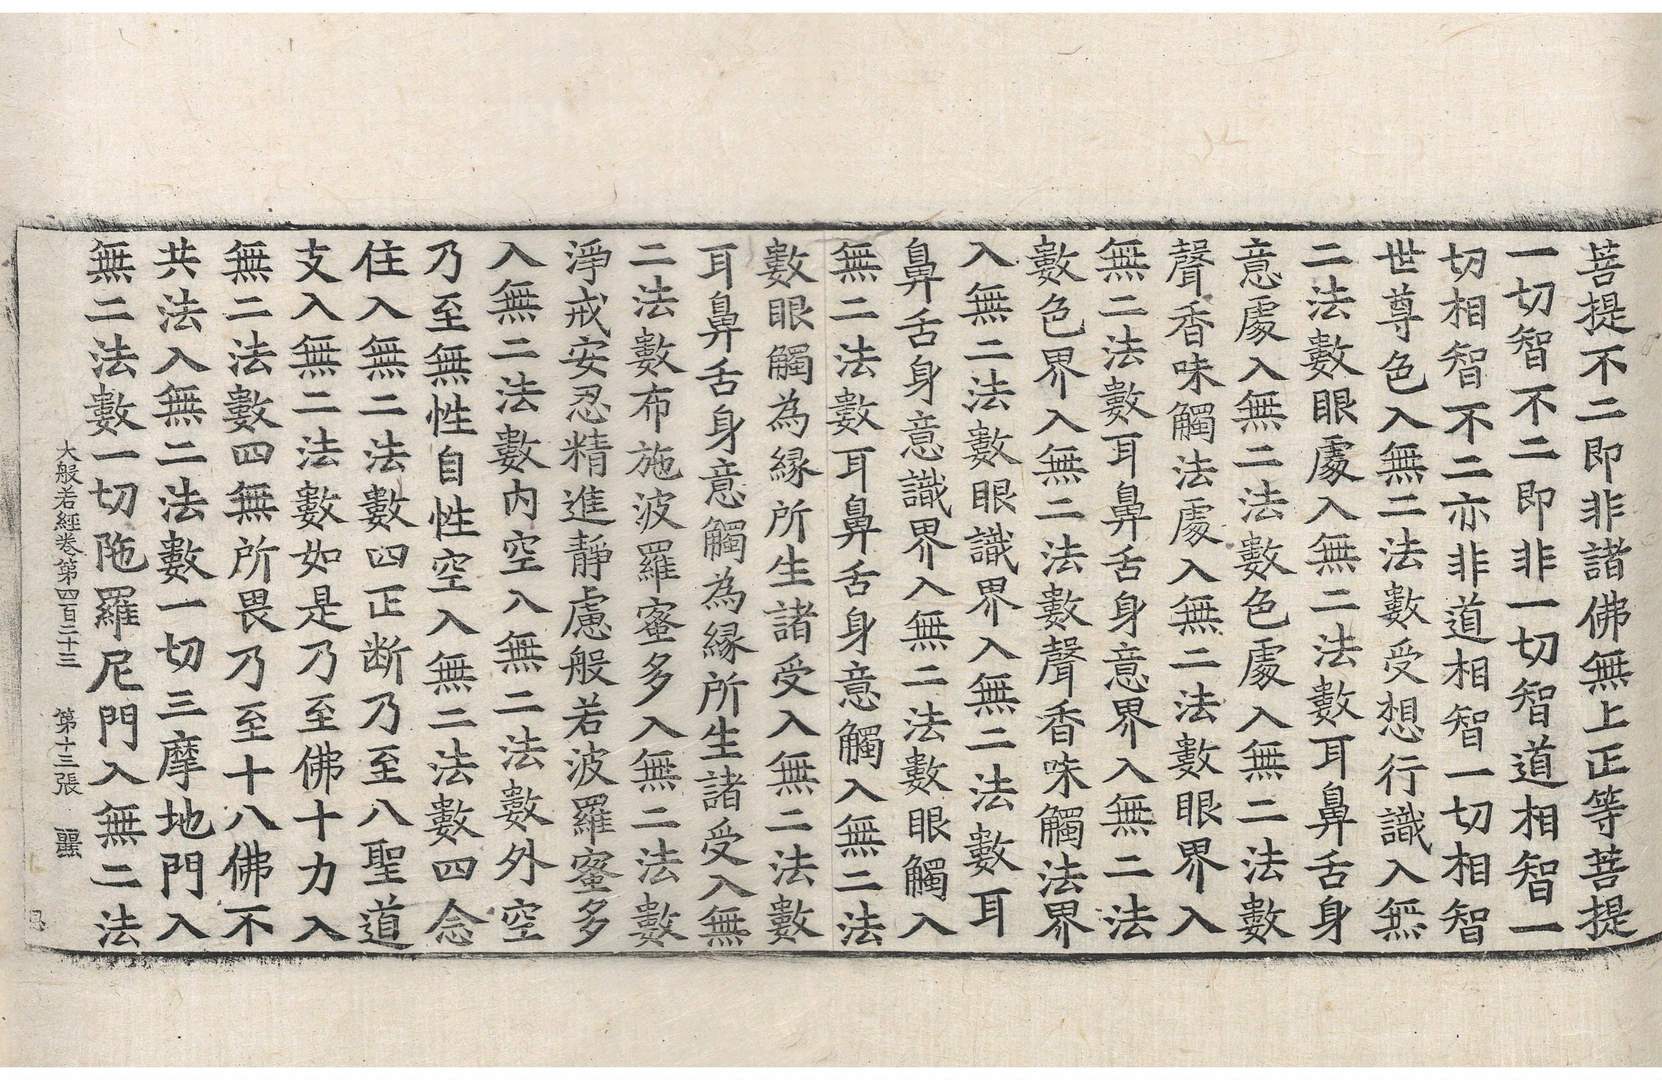 菩提不二即非諸佛無上正等菩提
一切智不二即非一切智道相智一
切相智不二亦非道相智一切相智
世尊色入無二法數受想行識入無
二法數眼處入無二法數耳鼻舌身
意處入無二法數色處入無二法數
聲香味觸法處入無二法數眼界入
無二法數耳鼻舌身意界入無二法
數色界入無二法數聲香味觸法界
入無二法數眼識界入無二法數耳
鼻舌身意識界入無二法數眼觸入
無二法數耳鼻舌身意觸入無二法
數眼觸為緣所生諸受入無二法數
耳鼻舌身意觸為緣所生諸受入無
二法數布施波羅蜜多入無二法數
淨戒安忍精進靜慮般若波羅蜜多
入無二法數內空入無二法數外空
乃至無性自性空入無二法數四念
住入無二法數四正断乃至八聖道
支入無二法數如是乃至佛十力入
無二法數四無所畏乃至十八佛不
共法入無二法數一切三摩地門入
無二法數一切陁羅尼門入無二法
大般若經卷第四百二十三 第十三張